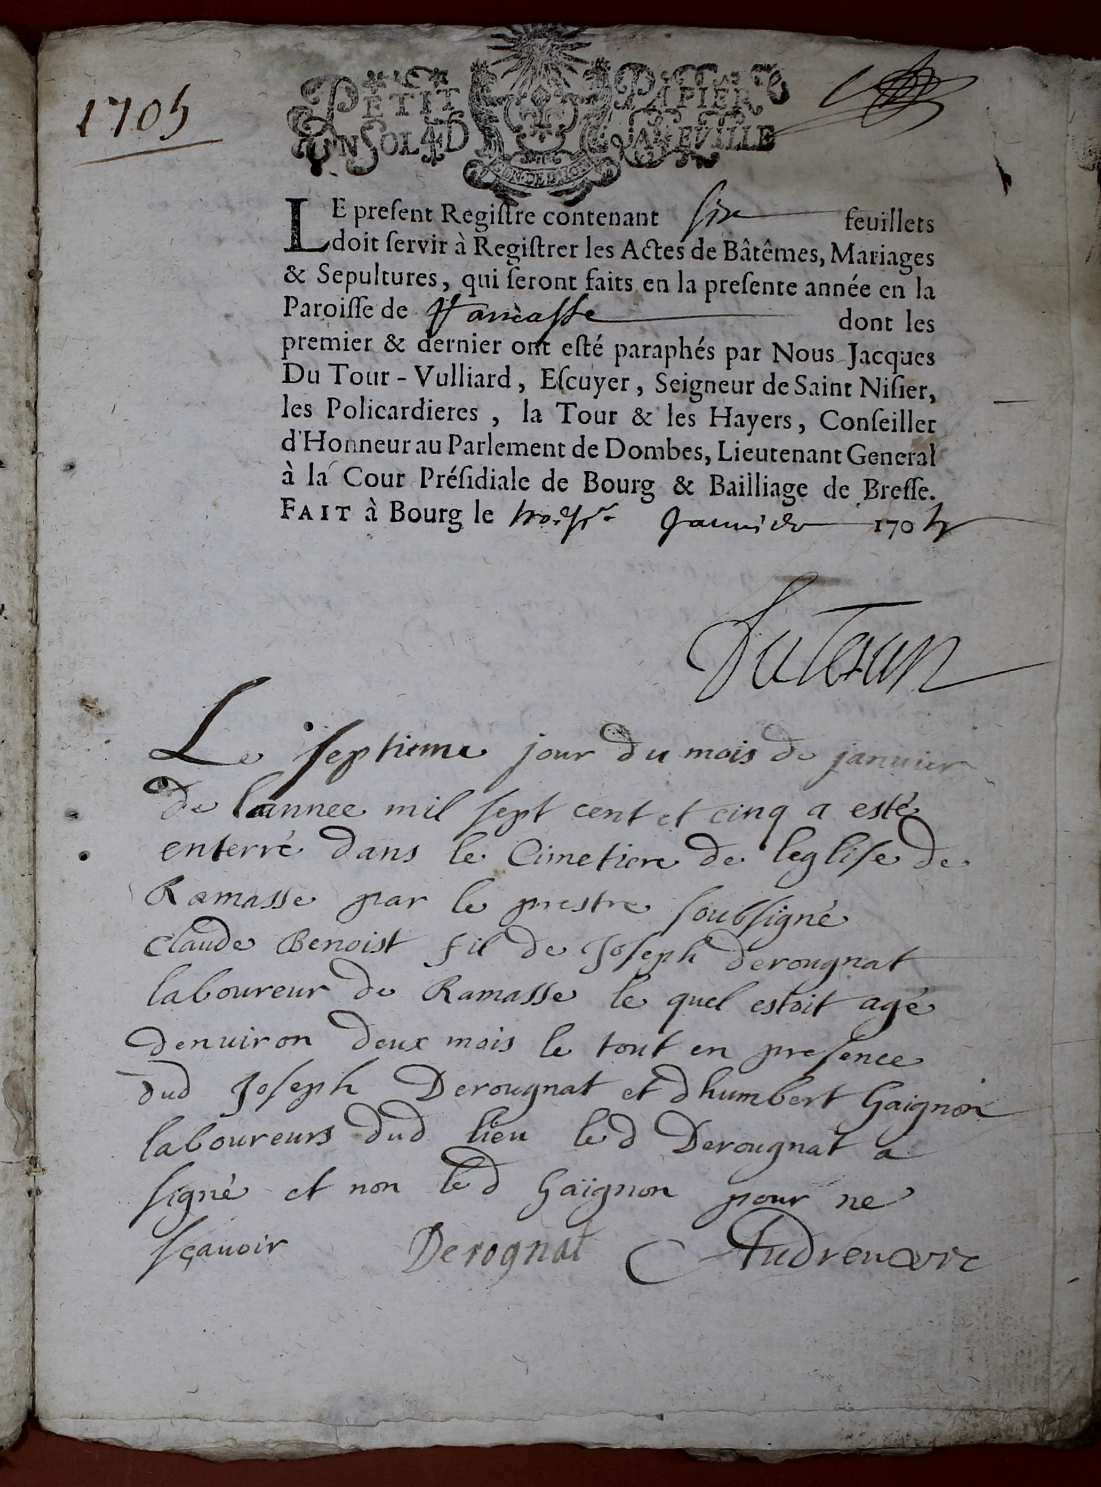 1705
PETIT PAPIER
UN SOL 4 D LA FEUILLE
LE preſent Regiſtre contenant six feuillets
doit ſervir à Regiſtrer les Actes de Bâtêmes, Mariages
& Sepultures, qui ſeront faits en la preſente année en la
Paroiſſe de Ramasse dont les
premier & dernier ont eſté paraphés par Nous Jacques
Du Tour-Vulliard, Eſcuyer, Seigneur de Saint Niſier,
les Policardieres, la Tour & les Hayers, Conſeiller
d'Honneur au Parlement de Dombes, Lieutenant General
à la Cour Préſidiale de Bourg & Bailliage de Breſſe.
FAIT à Bourg le Janvier 1705
Du Tour
Le septieme jour du mois de janvier
de lannee mil sept cent et cinq a esté
enterré dans le Cimetiere de leglise de
Ramasse par le prestre soubsigné
Claude Benoist fil de Joseph derougnat
laboureur de Ramasse le quel estoit agé
denuiron deux mois le tout en presence
dud Joseph Derougnat et dhumbert Gaignon
laboureurs dud lieu led Derougnat a
signé et non led Gaignon pour ne
sçauoir Derognat